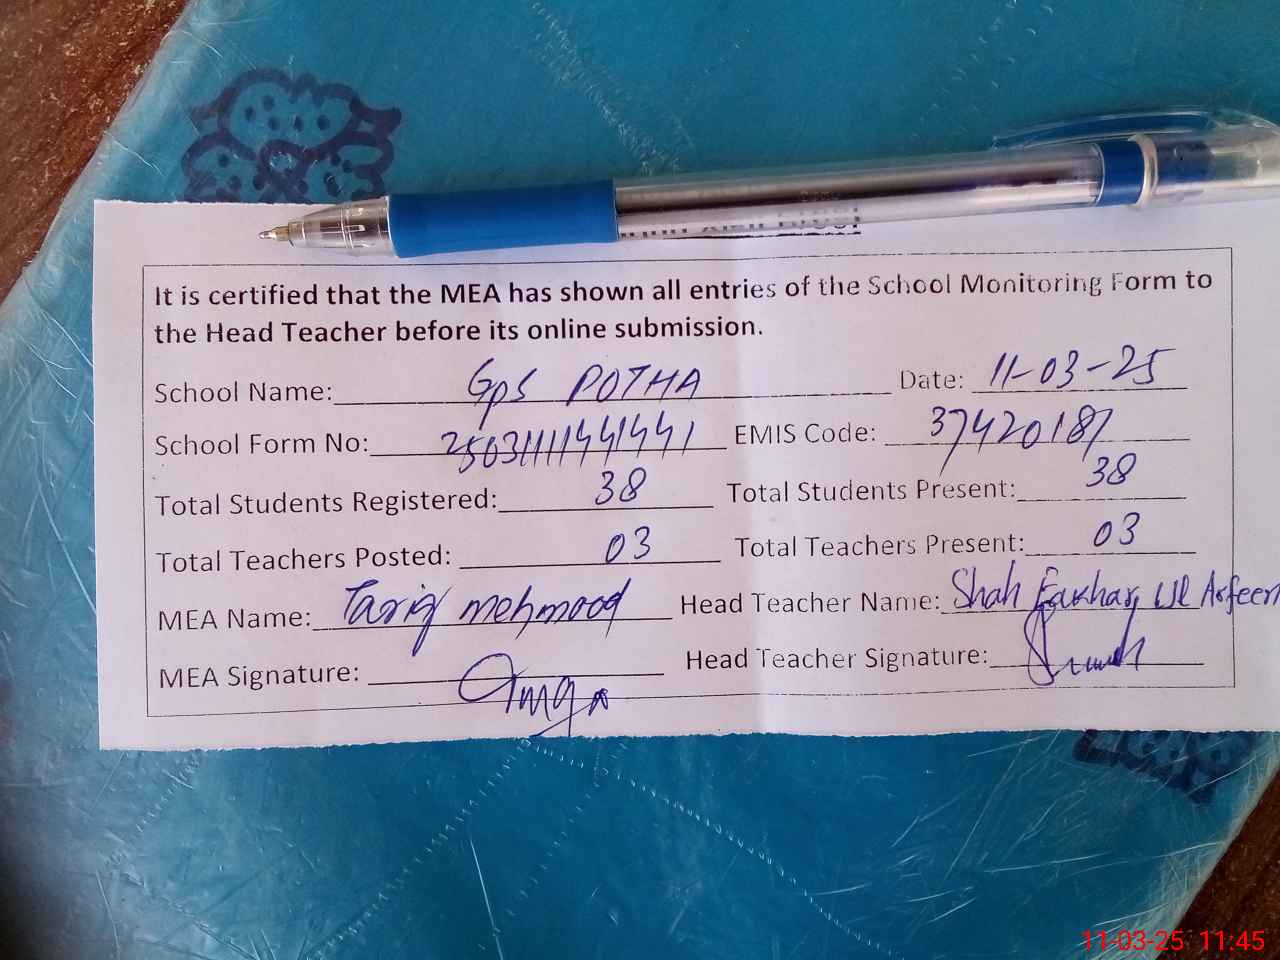 It is certified that the MEA has shown all entries of the School Monitoring Form to
the Head Teacher before its online submission.
School Name: GPS POTHA Date: 11-03-25
School Form No: EMIS Code: 37420187
Total Students Registered: 38 Total Students Present: 38
Total Teachers Posted: 03 Total Teachers Present: 03
MEA Name: Tariq mehmood Head Teacher Name: Shah Fakhar Ul Arfeen
MEA Signature: Head Teacher Signature:
11-03-25 11:45